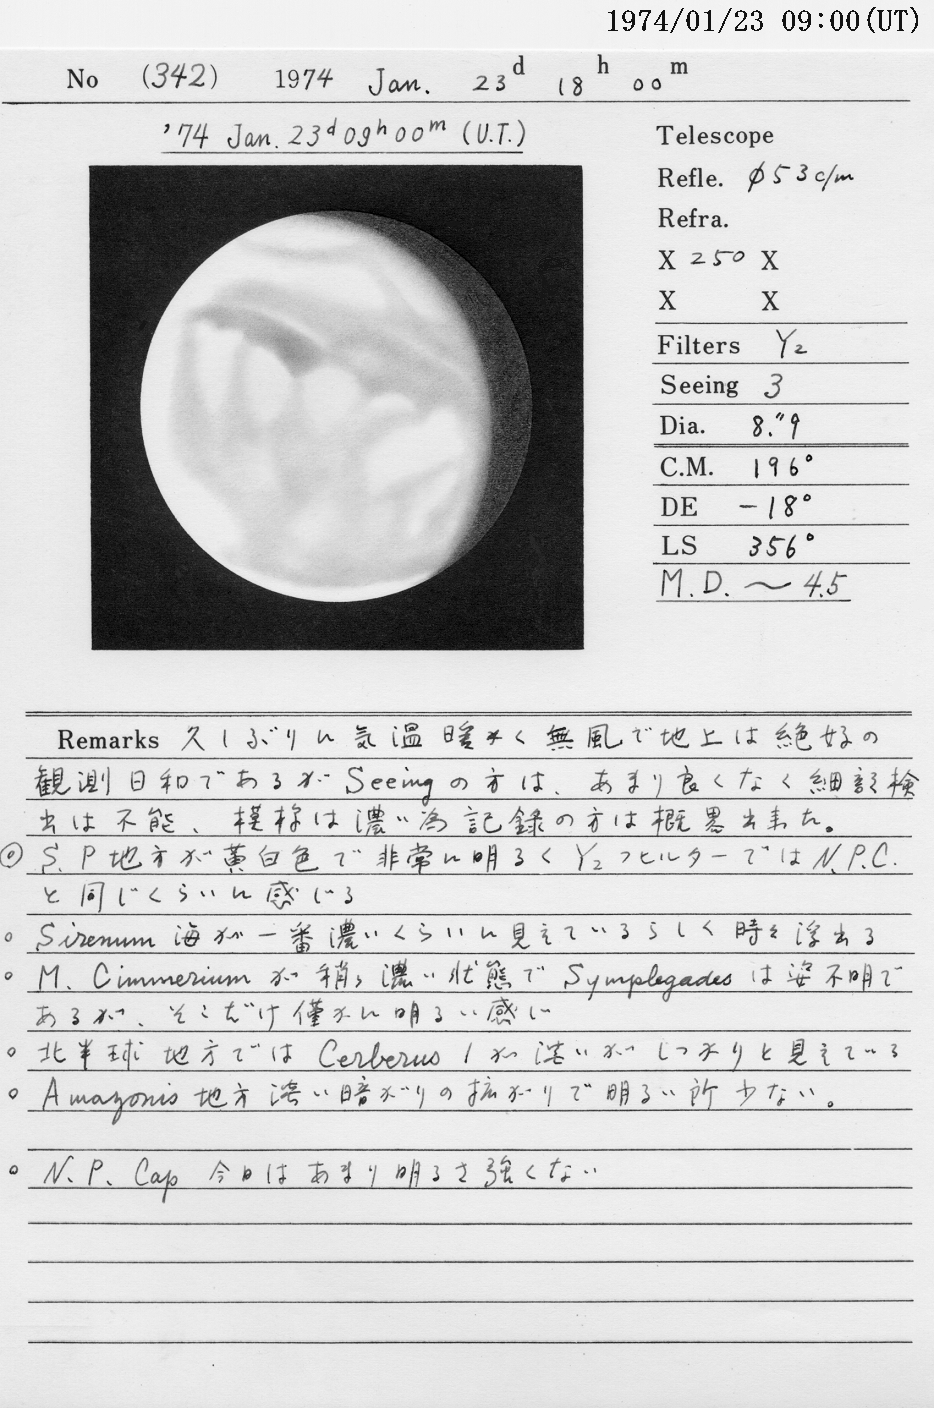 1974/01/23 09:00(UT)
No (342) 1974 Jan. 23d 18h 00m
'74 Jan. 23d 09h 00m (U.T.)
Telescope
Refle. φ53c/m
Refra.
X 250 X
X X
Filters Y2
Seeing 3
Dia. 8."9
C.M. 196°
DE -18°
LS 356°
M.D. ~ 4.5
Remarks 久しぶりに気温暖かく無風で地上は絶好の
観測日和であるがSeeingの方は、あまり良くなく細部検
出は不能、模様は濃い為記録の方は概畧出来た。
◎ S.P地方が黄白色で非常に明るくY2フヒルターではN.P.C.
と同じくらいに感じる
○ Sirenum 海が一番濃いくらいに見えているらしく時々浮出る
○ M. Cimmeriumが稍々濃い状態でSymplegadesは姿不明で
あるが、そこだけ僅かに明るい感じ
○ 北半球地方ではCerberus Iが淡いがしっかりと見えている
○ Amazonis地方淡い暗がりの拡がりで明るい所少ない。
○ N.P. Cap 今日はあまり明るさ強くない